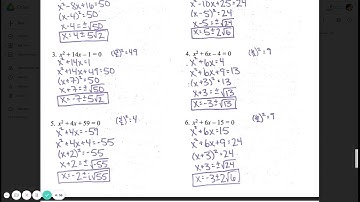 x²-8x+16=50
(x-4)²=50
x-4=±√50
x=4±5√2
x²-10x+25=24
(x-5)²=24
x-5=±√24
x=5±2√6
3. x² + 14x - 1 = 0 (14/2)²=49
x²+14x=1
x²+14x+49=50
(x+7)²=50
x+7=±√50
x=-7±5√2
4. x² + 6x - 4 = 0 (6/2)²=9
x²+6x=4
x²+6x+9=13
(x+3)²=13
x+3=±√13
x=-3±√13
5. x² + 4x + 59 = 0 (4/2)²=4
x²+4x=-59
x²+4x+4=-55
(x+2)²=-55
x+2=±√-55
x=-2±i√55
6. x² + 6x - 15 = 0 (6/2)²=9
x²+6x=15
x²+6x+9=24
(x+3)²=24
x+3=±√24
x=-3±2√6